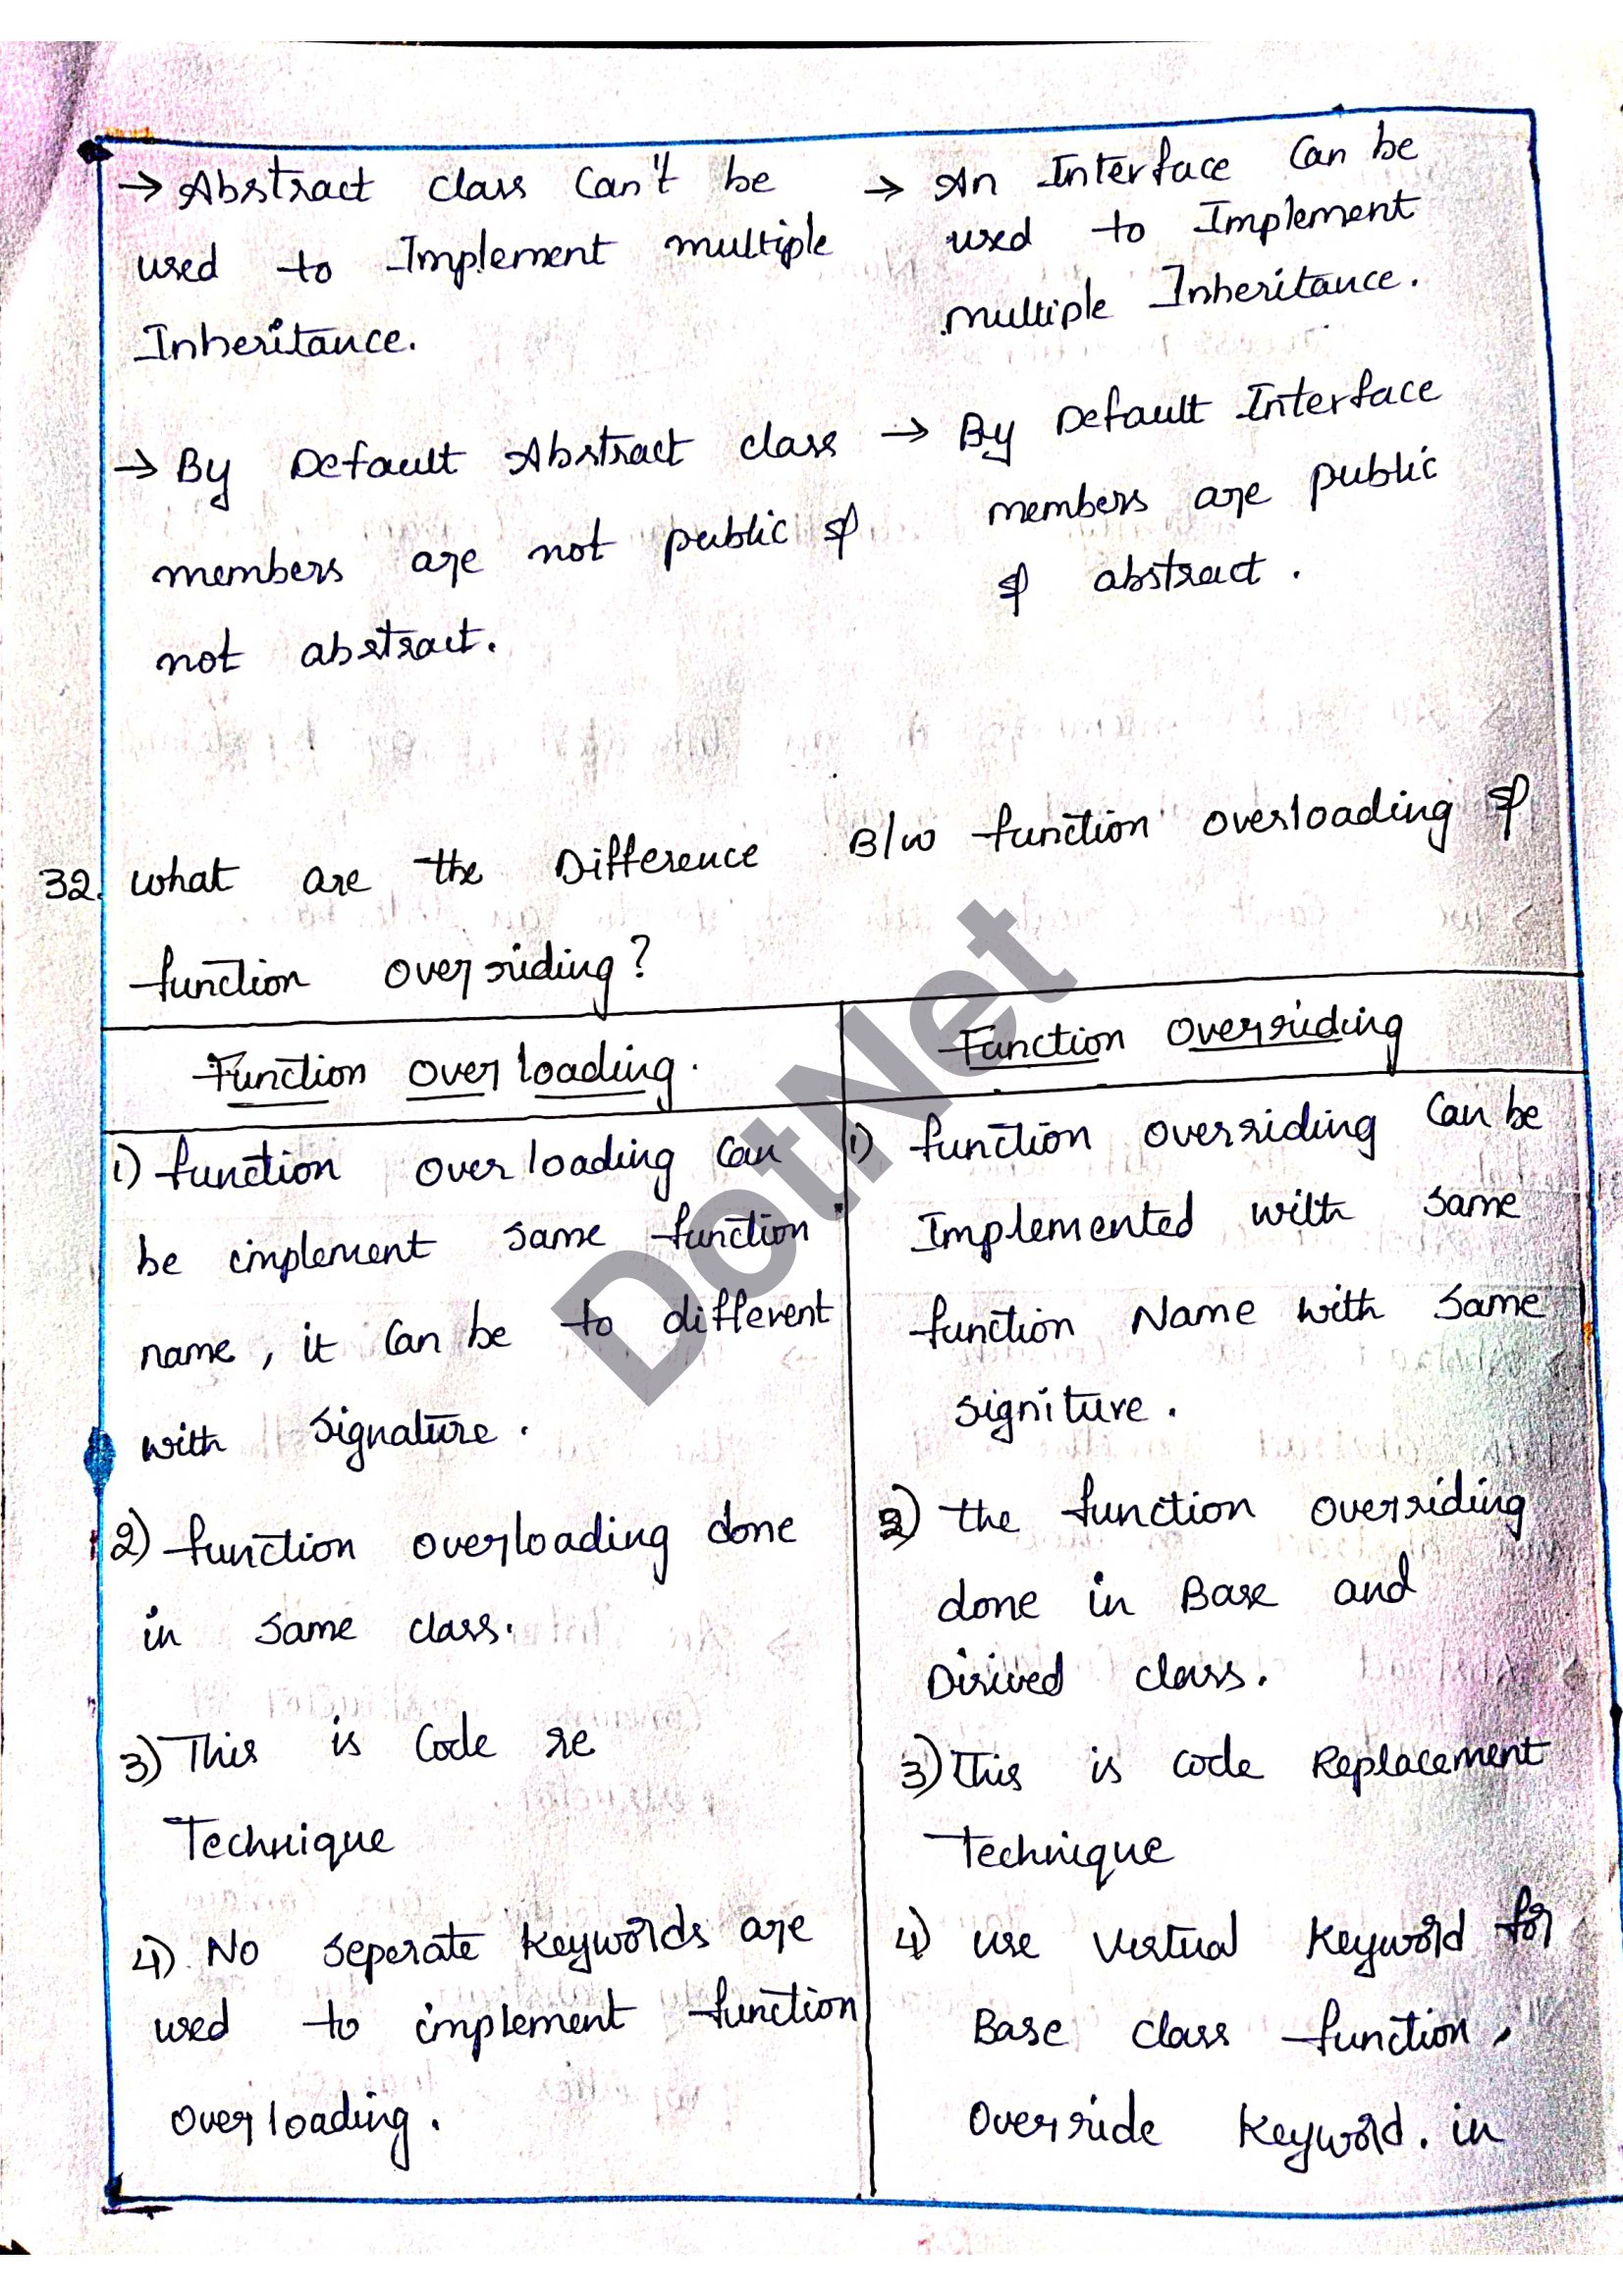 → Abstract class Can't be
used to Implement multiple
Inheritance.
→ By Default Abstract class
members are not public &
not abstract.
→ An Interface Can be
used to Implement
multiple Inheritance.
→ By Default Interface
members are public
& abstract.
32. what are the Difference B/w function overloading &
function overriding?
Function overloading.
1) function overloading Can
be implement same function
name, it Can be to different
with signature.
2) function overloading done
in same class.
3) This is Code re
Technique
4) No seperate keywords are
used to implement function
overloading.
Function Overriding
1) function overriding Can be
Implemented with same
function Name with same
signiture.
2) the function overriding
done in Base and
Dirived class.
3) This is code Replacement
Technique
4) use virtual keyword for
Base class function,
Override keyword. in
DotNet